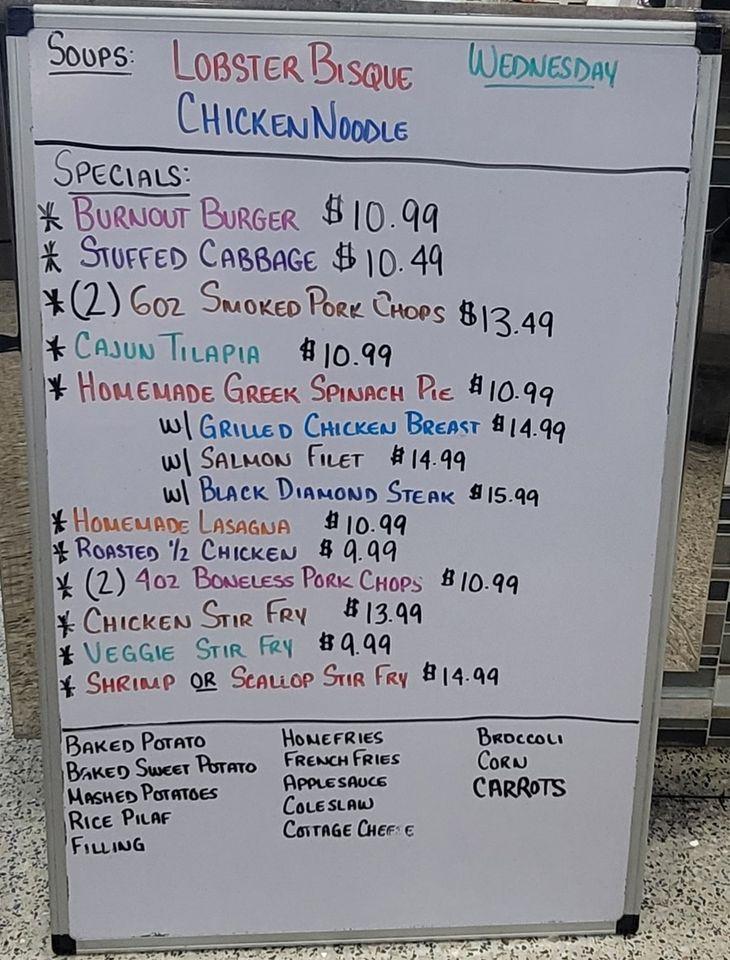 SOUPS: LOBSTER BISQUE WEDNESDAY
CHICKEN NOODLE
SPECIALS:
* BURNOUT BURGER $10.99
* STUFFED CABBAGE $10.49
* (2) 6OZ SMOKED PORK CHOPS $13.49
* CAJUN TILAPIA $10.99
* HOMEMADE GREEK SPINACH PIE $10.99
W/ GRILLED CHICKEN BREAST $14.99
W/ SALMON FILET $14.99
W/ BLACK DIAMOND STEAK $15.99
* HOMEMADE LASAGNA $10.99
* ROASTED 1/2 CHICKEN $9.99
* (2) 4OZ BONELESS PORK CHOPS $10.99
* CHICKEN STIR FRY $13.99
* VEGGIE STIR FRY $9.99
* SHRIMP OR SCALLOP STIR FRY $14.99
BAKED POTATO
BAKED SWEET POTATO
MASHED POTATOES
RICE PILAF
FILLING
HOMEFRIES
FRENCH FRIES
APPLESAUCE
COLESLAW
COTTAGE CHEESE
BROCCOLI
CORN
CARROTS